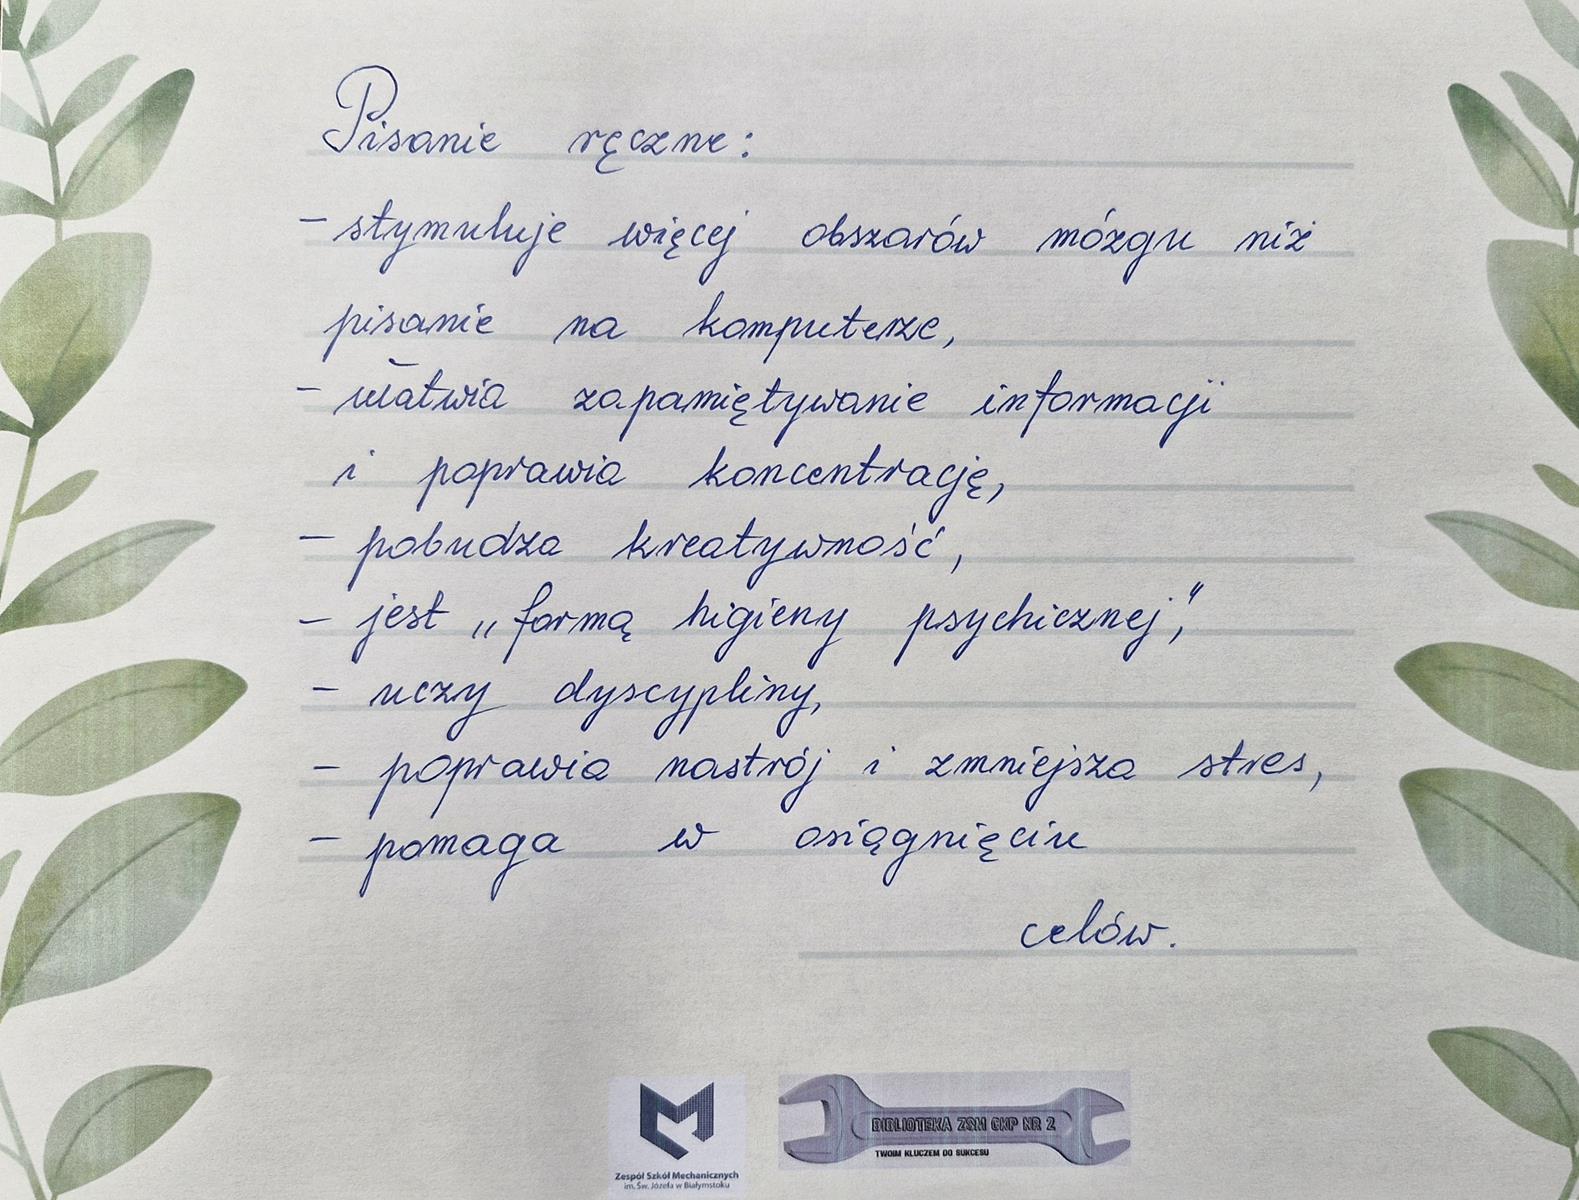 Pisanie ręczne:
- stymuluje więcej obszarów mózgu niż
pisanie na komputerze,
- ułatwia zapamiętywanie informacji
i poprawia koncentrację,
- pobudza kreatywność,
- jest „formą higieny psychicznej”,
- uczy dyscypliny,
- poprawia nastrój i zmniejsza stres,
- pomaga w osiągnięciu
celów.
BIBLIOTEKA ZSM CKP NR 2
TWOIM KLUCZEM DO SUKCESU
Zespół Szkół Mechanicznych
im. Św. Józefa w Białymstoku